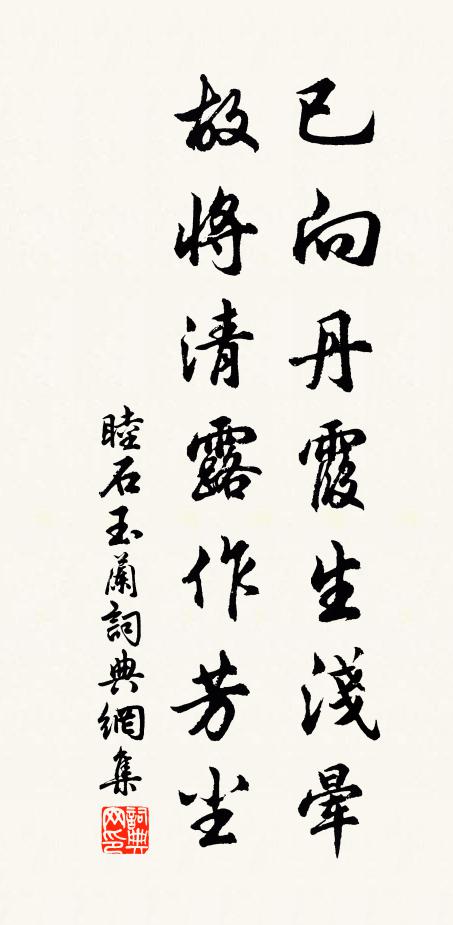 已向丹霞生淺暈
故將清露作芳尘
睦石玉蘭詞典網集
詞典网印